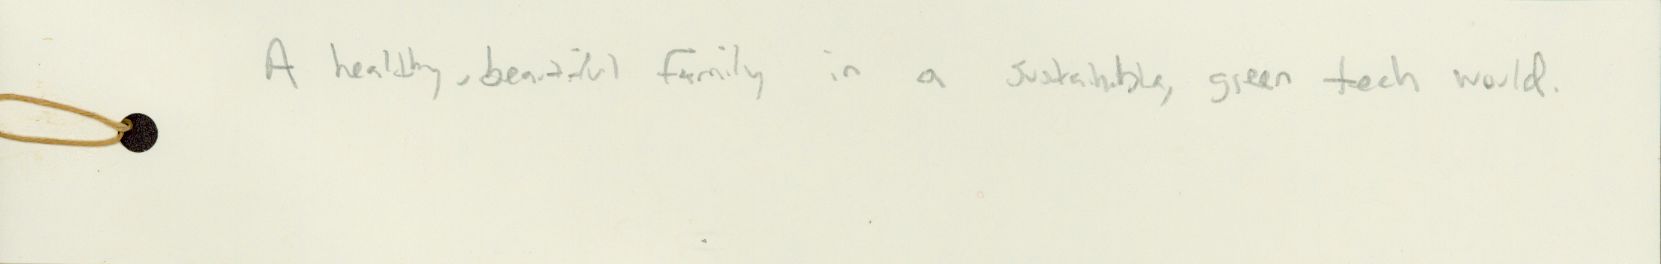 A healthy, beautiful family in a sustainable, green tech world.